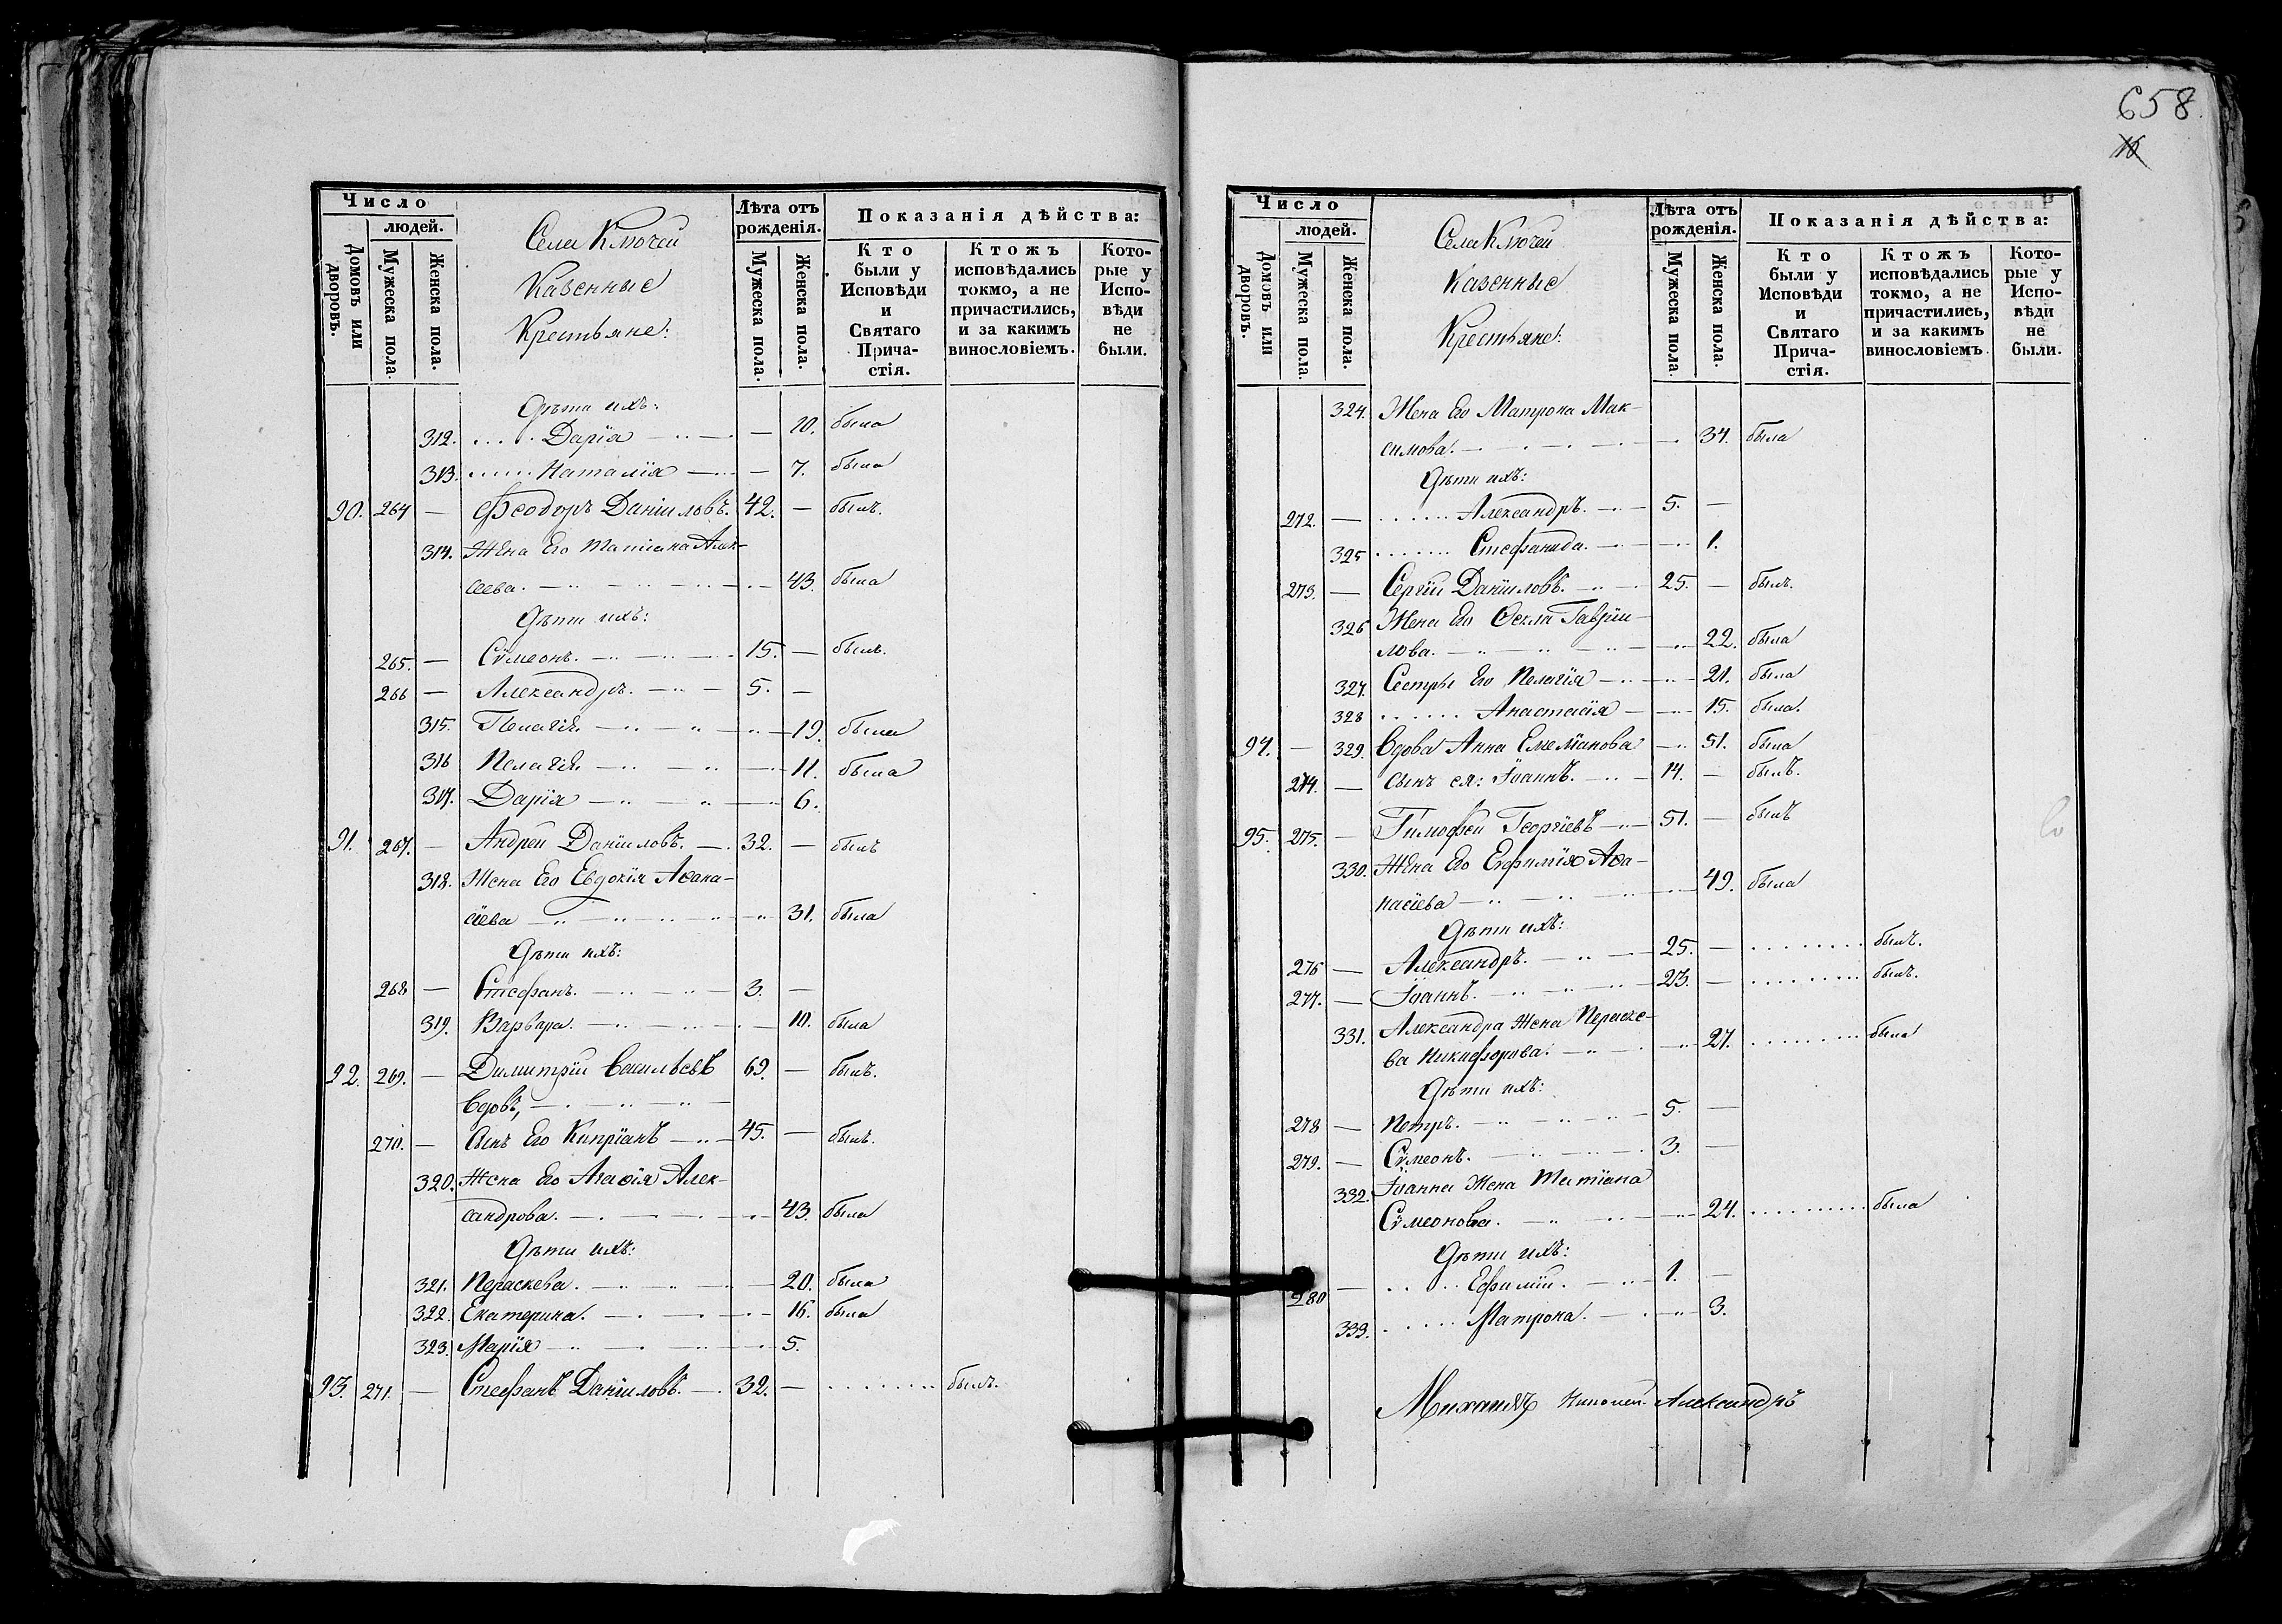 Число
людей.
Домовъ или дворовъ.
Мужеска пола.
Женска пола.
Села Ключей
Казенные
Крестьяне:
Лѣта отъ рожденія.
Мужеска пола.
Женска пола.
Показанія дѣйства:
Кто были у Исповѣди и Святаго Прича-стія.
Ктожъ исповѣдались токмо, а не причастились, и за какимъ винословіемъ.
Кото-рые у Испо-вѣди не были.
Дѣти ихъ:
312. ..... Дарія — — 10. была
313. ..... Наталія — — 7. была
90. 264 — Феодоръ Даніиловъ. 42. — былъ.
314. Жена Его Татіана Алек-
сеева. — 43. была
Дѣти ихъ:
265. — Сѷмеонъ. — 15. — былъ.
266 — Александръ. — 5. —
315. Пелагія — 19. была
316 Пелагія — 11. была
317. Дарія — 6.
91. 267. — Андрей Даніиловъ. — 32. — былъ
318. Жена Его Евдокія Аѳана-
сіева — 31. была
Дѣти ихъ:
268 — Стефанъ. — 3. —
319. Варвара. — 10. была
92. 269. — Димитрій Васильевъ 69. — былъ.
Вдовъ, —
270. — Сынъ Его Кипріанъ — 45. — былъ.
320. Жена Его Агаѳія Алек-
сандрова. — 43. была
Дѣти ихъ:
321. Пераскева. — 20. была
322. Екатерина. — 16. была
323. Марія — 5.
93. 271. — Стефанъ Даніиловъ. — 32. — ........ былъ.
658.
16
Число
людей.
Домовъ или дворовъ.
Мужеска пола.
Женска пола.
Села Ключей
Казенные
Крестьяне:
Лѣта отъ рожденія.
Мужеска пола.
Женска пола.
Показанія дѣйства:
Кто были у Исповѣди и Святаго Прича-стія.
Ктожъ исповѣдались токмо, а не причастились, и за какимъ винословіемъ.
Кото-рые у Испо-вѣди не были.
324. Жена Его Матрона Мак-
симова. — 34. была
Дѣти ихъ:
272. — ...... Александръ. — 5. —
325 ....... Стефанида. — 1.
273. — Сергій Даніиловъ. — 25. — былъ.
326 Жена Его Ѳекла Гавріи-
лова. — 22. была
327. Сестры Его Пелагія — 21. была
328 ...... Анастасія — 15. была.
94. — 329. Вдова Анна Емеліанова — 51. была
274. — Сынъ ея: Іоаннъ. — 14. — былъ.
95. 275. — Тимофей Георгіевъ — 51. — былъ
330. Жена Его Ефимія Аѳа-
насіева — 49. была
Дѣти ихъ:
276 — Александръ. — 25. — ........ былъ.
277. — Іоаннъ. — 23. — ........ былъ.
331. Александра Жена Пераске-
ва Никифорова. — 27. ........ была
Дѣти ихъ:
278 — Петръ. — 5. —
279. — Сѷмеонъ. — 3. —
332. Іоанна Жена Татіана
Сѷмеонова. — 24. ........ была
Дѣти ихъ:
280 — ..... Ефимій. — 1. —
333. ..... Матрона. — 3.
Михаилъ Николай Александръ